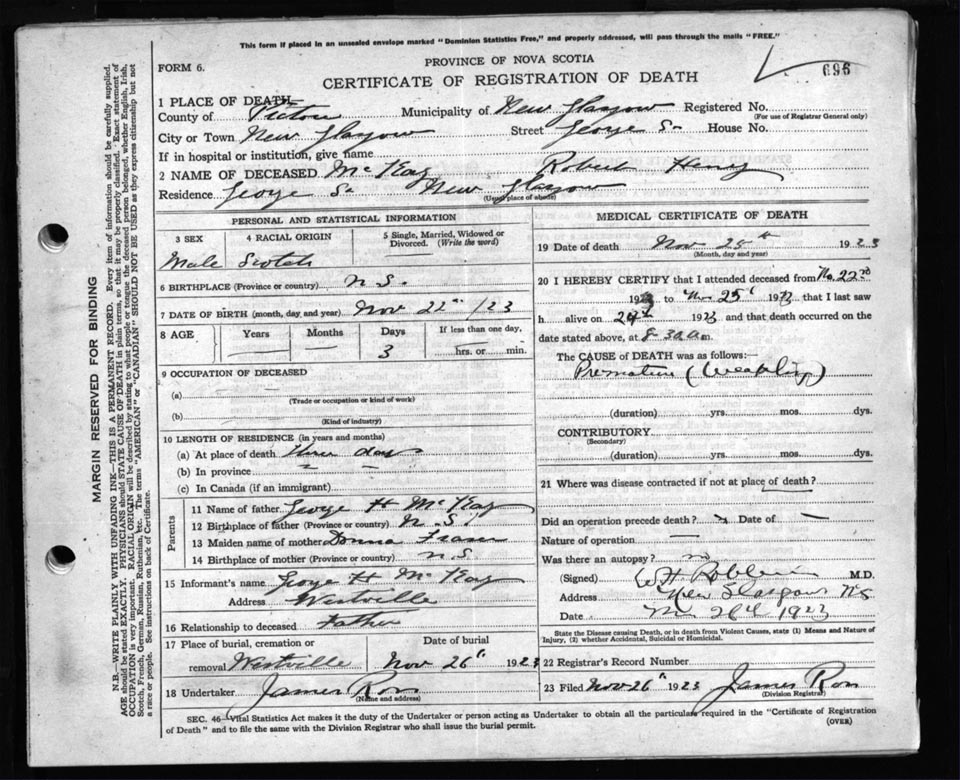 This form if placed in an unsealed envelope marked "Dominion Statistics Free," and properly addressed, will pass through the mails "FREE."
FORM 6.
PROVINCE OF NOVA SCOTIA
696
CERTIFICATE OF REGISTRATION OF DEATH
1 PLACE OF DEATH
County of Pictou Municipality of New Glasgow Registered No.
(For use of Registrar General only)
City or Town New Glasgow Street George St House No.
If in hospital or institution, give name
2 NAME OF DECEASED McKay Robert Henry
Residence George St New Glasgow
(Usual place of abode)
PERSONAL AND STATISTICAL INFORMATION
3 SEX 4 RACIAL ORIGIN 5 Single, Married, Widowed or Divorced. (Write the word)
Male Scotch
6 BIRTHPLACE (Province or country) N S.
7 DATE OF BIRTH (month, day, and year) Nov 22nd /23
8 AGE Years Months Days If less than one day,
3 hrs. or min.
9 OCCUPATION OF DECEASED
(a)
(Trade or occupation or kind of work)
(b)
(Kind of industry)
10 LENGTH OF RESIDENCE (in years and months)
(a) At place of death three days
(b) In province
(c) In Canada (if an immigrant)
Parents
11 Name of father George H McKay
12 Birthplace of father (Province or country) N.S.
13 Maiden name of mother Donna Fraser
14 Birthplace of mother (Province or country) N.S.
15 Informant's name George H McKay
Address Westville
16 Relationship to deceased Father
17 Place of burial, cremation or Date of burial
removal Westville Nov 26th 1923
18 Undertaker James Ross
(Name and address)
MEDICAL CERTIFICATE OF DEATH
19 Date of death Nov 25th 1923
(Month, day and year)
20 I HEREBY CERTIFY that I attended deceased from No. 22nd
1923 to Nov 25th 1923 that I last saw
h alive on 24th 1923 and that death occurred on
date stated above, at 8-30 a m.
The CAUSE of DEATH was as follows:—
Premature (Weakling)
(duration) yrs. mos. dys.
CONTRIBUTORY
(Secondary)
(duration) yrs. mos. dys.
21 Where was disease contracted if not at place of death?
Did an operation precede death? Date of —
Nature of operation —
Was there an autopsy? no
(Signed) W H M.D.
Address New Glasgow N S
Date 1923
State the Disease causing Death, or in death from Violent Causes, state (1) Means and Nature of
Injury, (2) whether Accidental, Suicidal or Homicidal.
22 Registrar's Record Number
23 Filed Nov 26th 1923 James Ross
(Division Registrar)
SEC. 46—Vital Statistics Act makes it the duty of the Undertaker or person acting as Undertaker to obtain all the particulars required in the "Certificate of Registration
of Death" and to file the same with the Division Registrar who shall issue the burial permit.
(OVER)
MARGIN RESERVED FOR BINDING
N.B.—WRITE PLAINLY WITH UNFADING INK—THIS IS A PERMANENT RECORD. Every item of information should be carefully supplied.
AGE should be stated EXACTLY. PHYSICIANS should STATE CAUSE OF DEATH in plain terms, so that it may be properly classified. Exact statement of
OCCUPATION is very important. RACIAL ORIGIN will be described by stating to what people or tongue the deceased person belonged, whether English, Irish,
Scotch, French, German, Russian, Ruthenian, etc. The terms "AMERICAN" or "CANADIAN" SHOULD NOT BE USED as they express citizenship but not
a race or people. See instructions on back of Certificate.